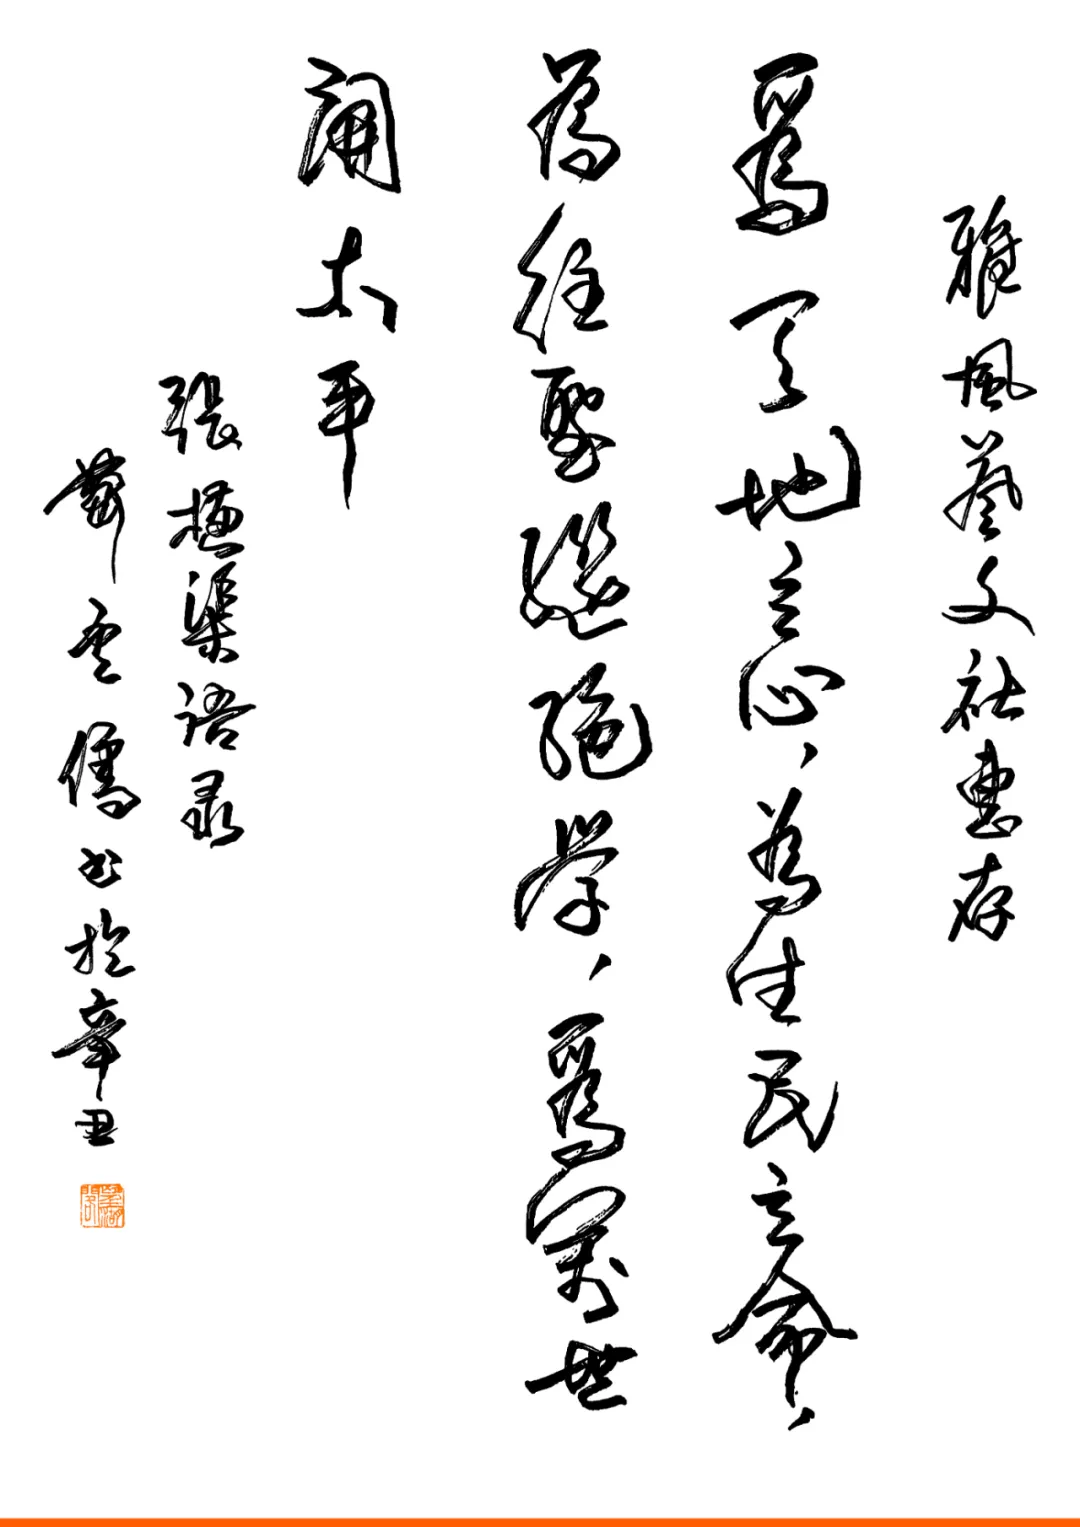 雅風藝文社惠存
爲天地立心，為生民立命，
為往聖繼絕學，爲萬世
開太平
張橫渠语录
雲儒书於辛丑